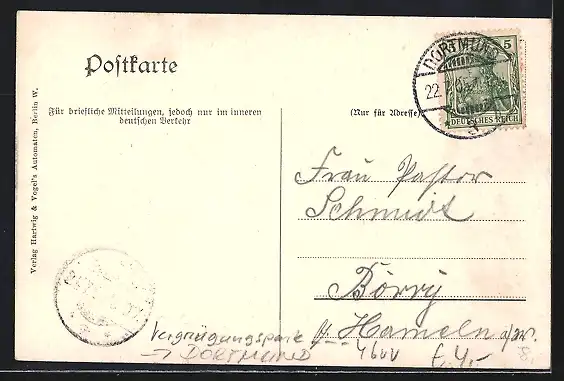 Postkarte
Für briefliche Mitteilungen, jedoch nur im inneren
deutschen Verkehr
(Nur für Adresse)
DORTMUND
22.
5
DEUTSCHES REICH
Verlag Hartwig & Vogel's Automaten, Berlin W.
Frau Pastor
Schmidt
Börry
Hameln a/W.
Vergnügungspark
→ DORTMUND